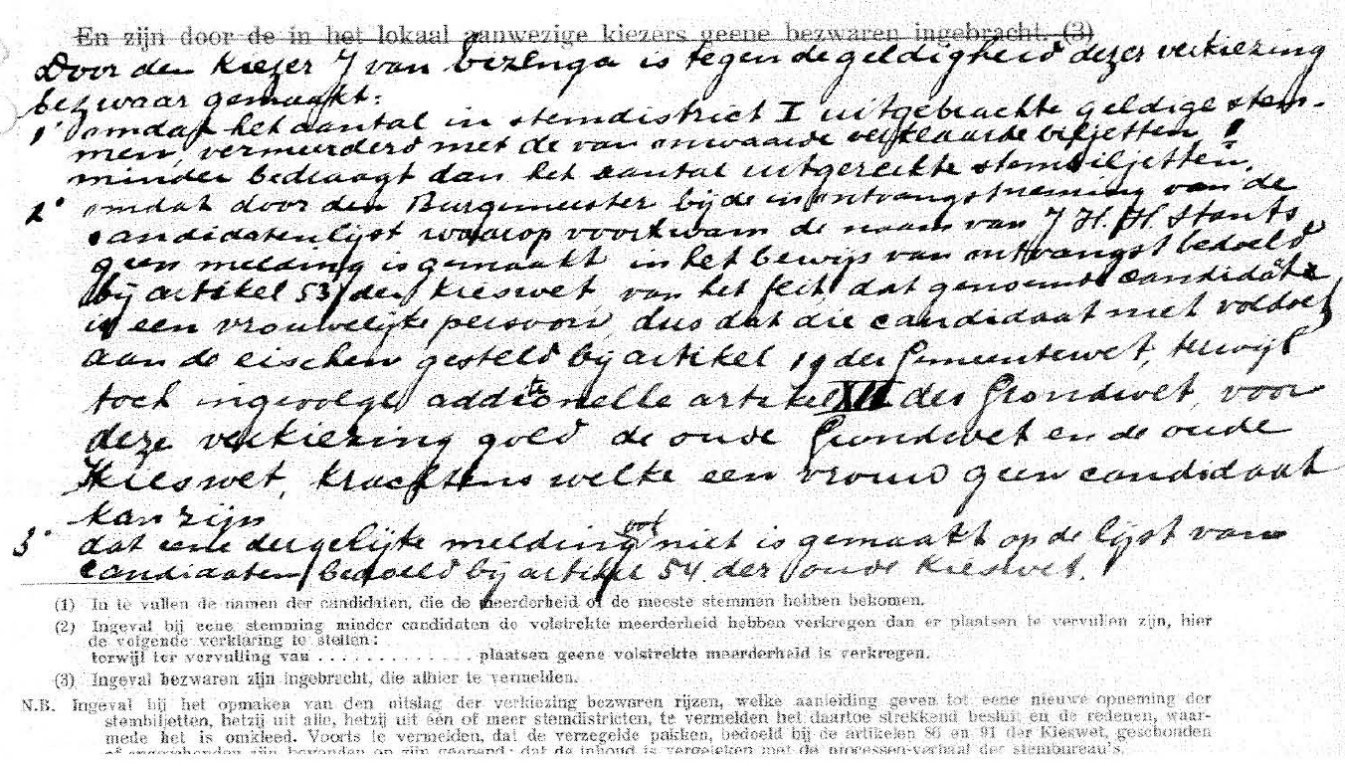 En zijn door de in het lokaal aanwezige kiezers geene bezwaren ingebracht. (3)
Door den kiezer J van Bezenga is tegen de geldigheid dezer verkiezing
bezwaar gemaakt:
1° omdat het aantal in stemdistrict I uitgebrachte geldige stem-
men, vermeerderd met de van onwaarde verklaarde biljetten
minder bedraagt dan het aantal uitgereikte stembiljetten.
2° omdat door den Burgemeester bij de in ontvangstneming van de
candidatenlijst waarop voorkwam de naam van J. H. H. Stants
geen melding is gemaakt in het bewijs van ontvangst bedoeld
bij artikel 53 der Kieswet van het feit, dat genoemde candidate
is een vrouwelijke persoon, dus dat die candidaat niet voldoet
aan de eischen gesteld bij artikel 19 der Gemeentewet, terwijl
toch ingevolge additionelle artikel XII der Grondwet, voor
deze verkiezing gold de oude Grondwet en de oude
Kieswet, krachtens welke een vrouw geen candidaat
kan zijn
3° dat eene dergelijke melding ook niet is gemaakt op de lijst van
candidaten bedoeld bij artikel 54 der oude Kieswet.
(1) In te vullen de namen der candidaten, die de meerderheid of de meeste stemmen hebben bekomen.
(2) Ingeval bij eene stemming minder candidaten de volstrekte meerderheid hebben verkregen dan er plaatsen te vervullen zijn, hier
de volgende verklaring te stellen:
terwijl ter vervulling van . . . . . . . . . . . . . . plaatsen geene volstrekte meerderheid is verkregen.
(3) Ingeval bezwaren zijn ingebracht, die alhier te vermelden.
N.B. Ingeval bij het opmaken van den uitslag der verkiezing bezwaren rijzen, welke aanleiding geven tot eene nieuwe opneming der
stembiljetten, hetzij uit alle, hetzij uit één of meer stemdistricten, te vermelden het daartoe strekkend besluit en de redenen, waar-
mede het is omkleed. Voorts te vermelden, dat de verzegelde pakken, bedoeld bij de artikelen 86 en 91 der Kieswet, geschonden
of ongeschonden zijn bevonden en zijn geopend; dat de inhoud is vergeleken met de processen-verbaal der stembureau's.